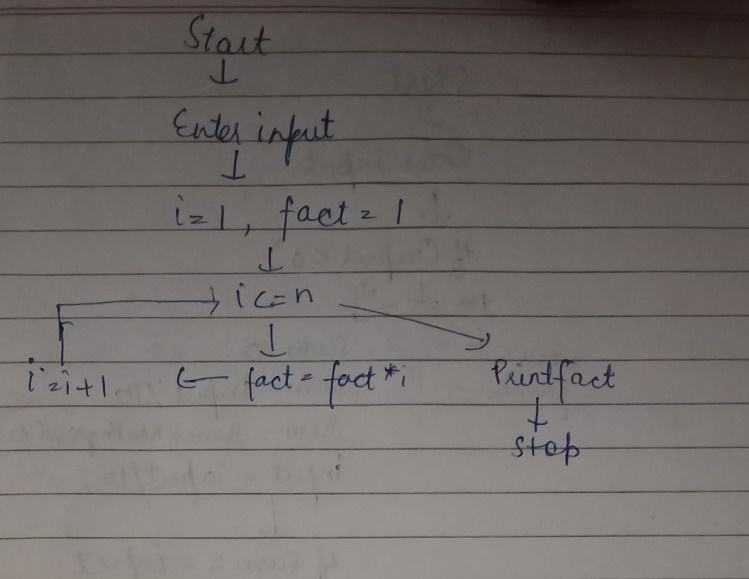 Start
Enter input
i=1, fact = 1
i<=n
i=i+1 fact = fact * i Print fact
Stop